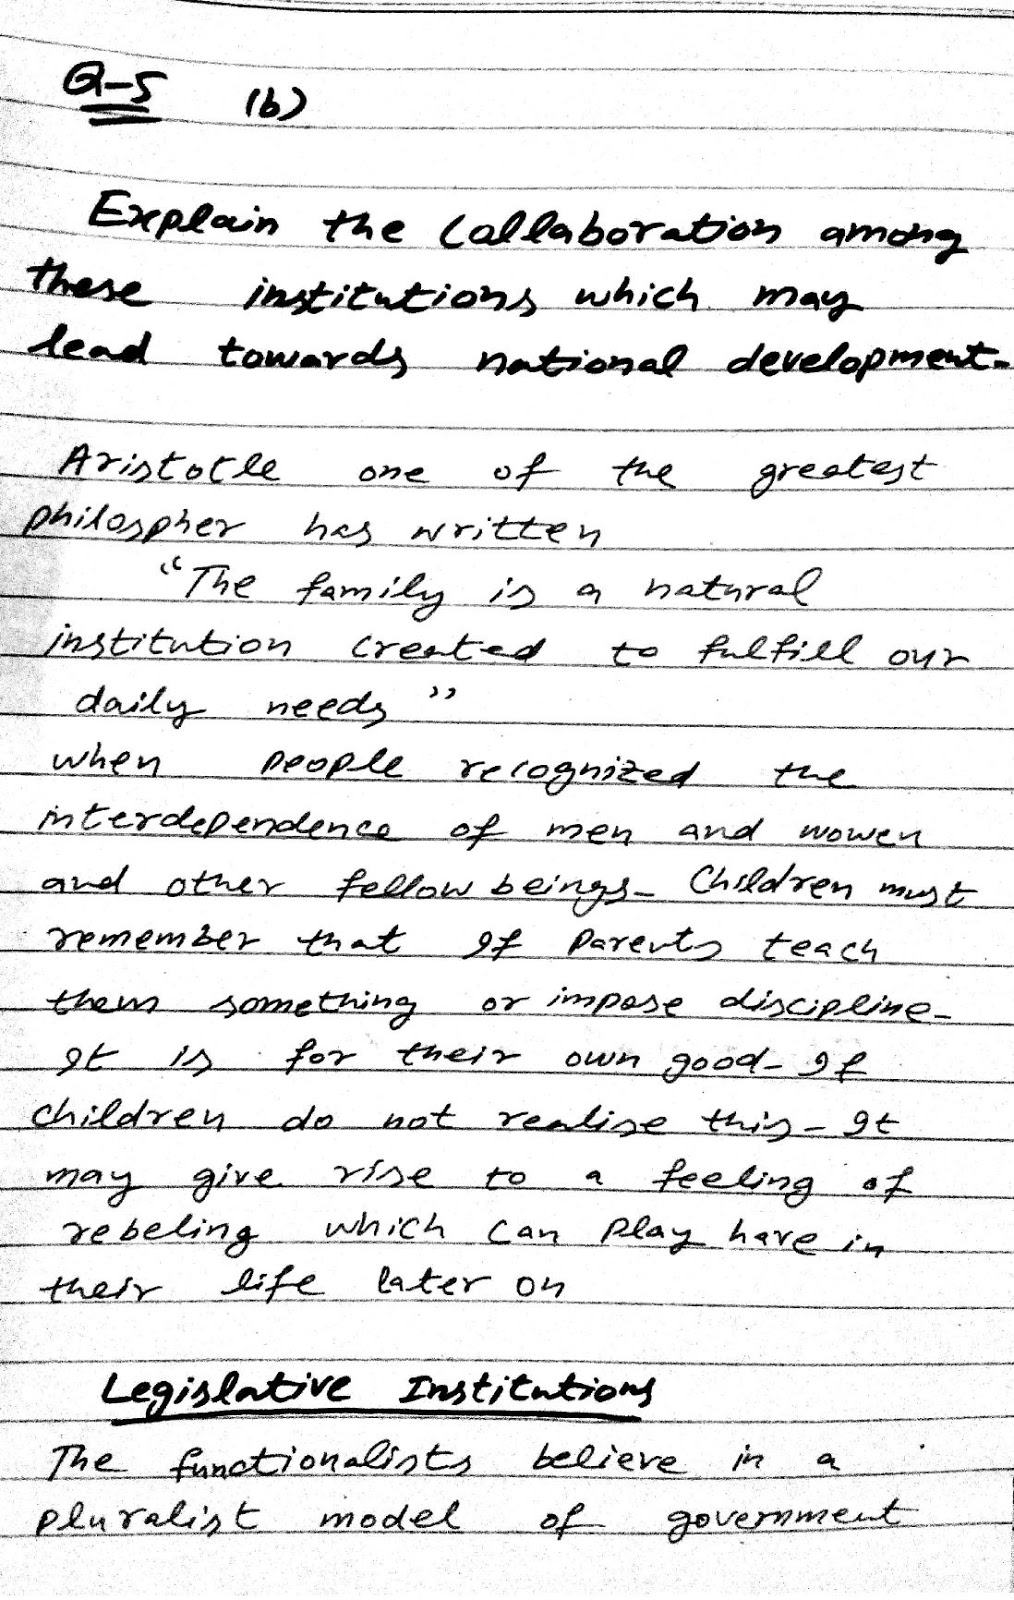 Q-5 (b)
Explain the Collaboration among
these institutions which may
lead towards national development.
Aristotle one of the greatest
philospher has written
"The family is a natural
institution created to fulfill our
daily needs"
when people recognized the
interdependence of men and wowen
and other fellow beings. Children must
remember that If Parents teach
them something or impose discipline.
It is for their own good. If
children do not realise this. It
may give rise to a feeling of
rebeling which can Play have in
their life later on
Legislative Institutions
The functionalists believe in a
pluralist model of government